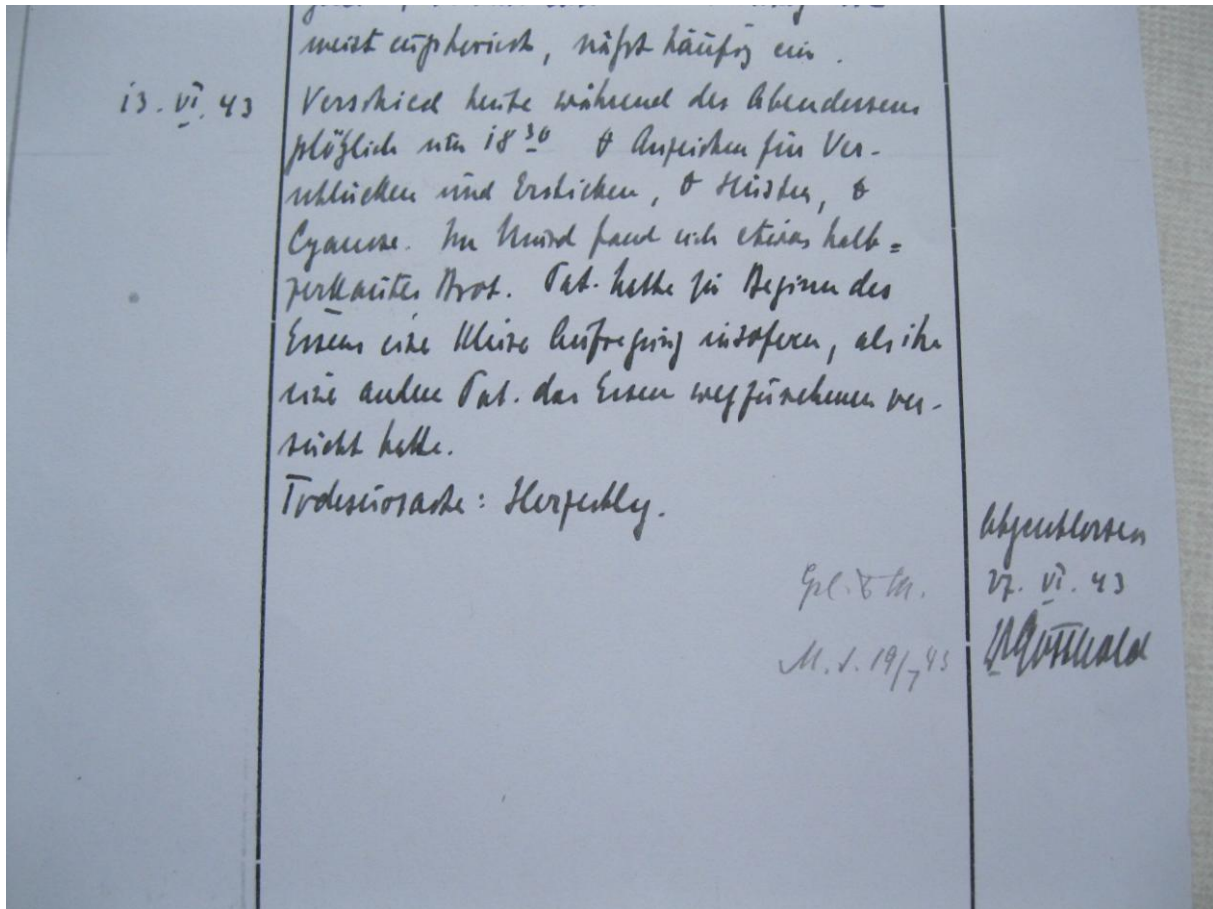 meist euphorisch, näßt häufig ein.
13. VI. 43 Verschied heute während des Abendessens
plötzlich um 18 30 Anzeichen für Ver-
schlucken und Ersticken, Husten,
Cyanose. Im Mund fand sich etwas halb=
zerkautes Brot. Pat. hatte zu Beginn des
Essens eine kleine Aufregung insofern, als ihr
eine andere Pat. das Essen wegzunehmen ver-
sucht hatte.
Todesursache: Herzschlag.
Abgeschlossen
27. VI. 43